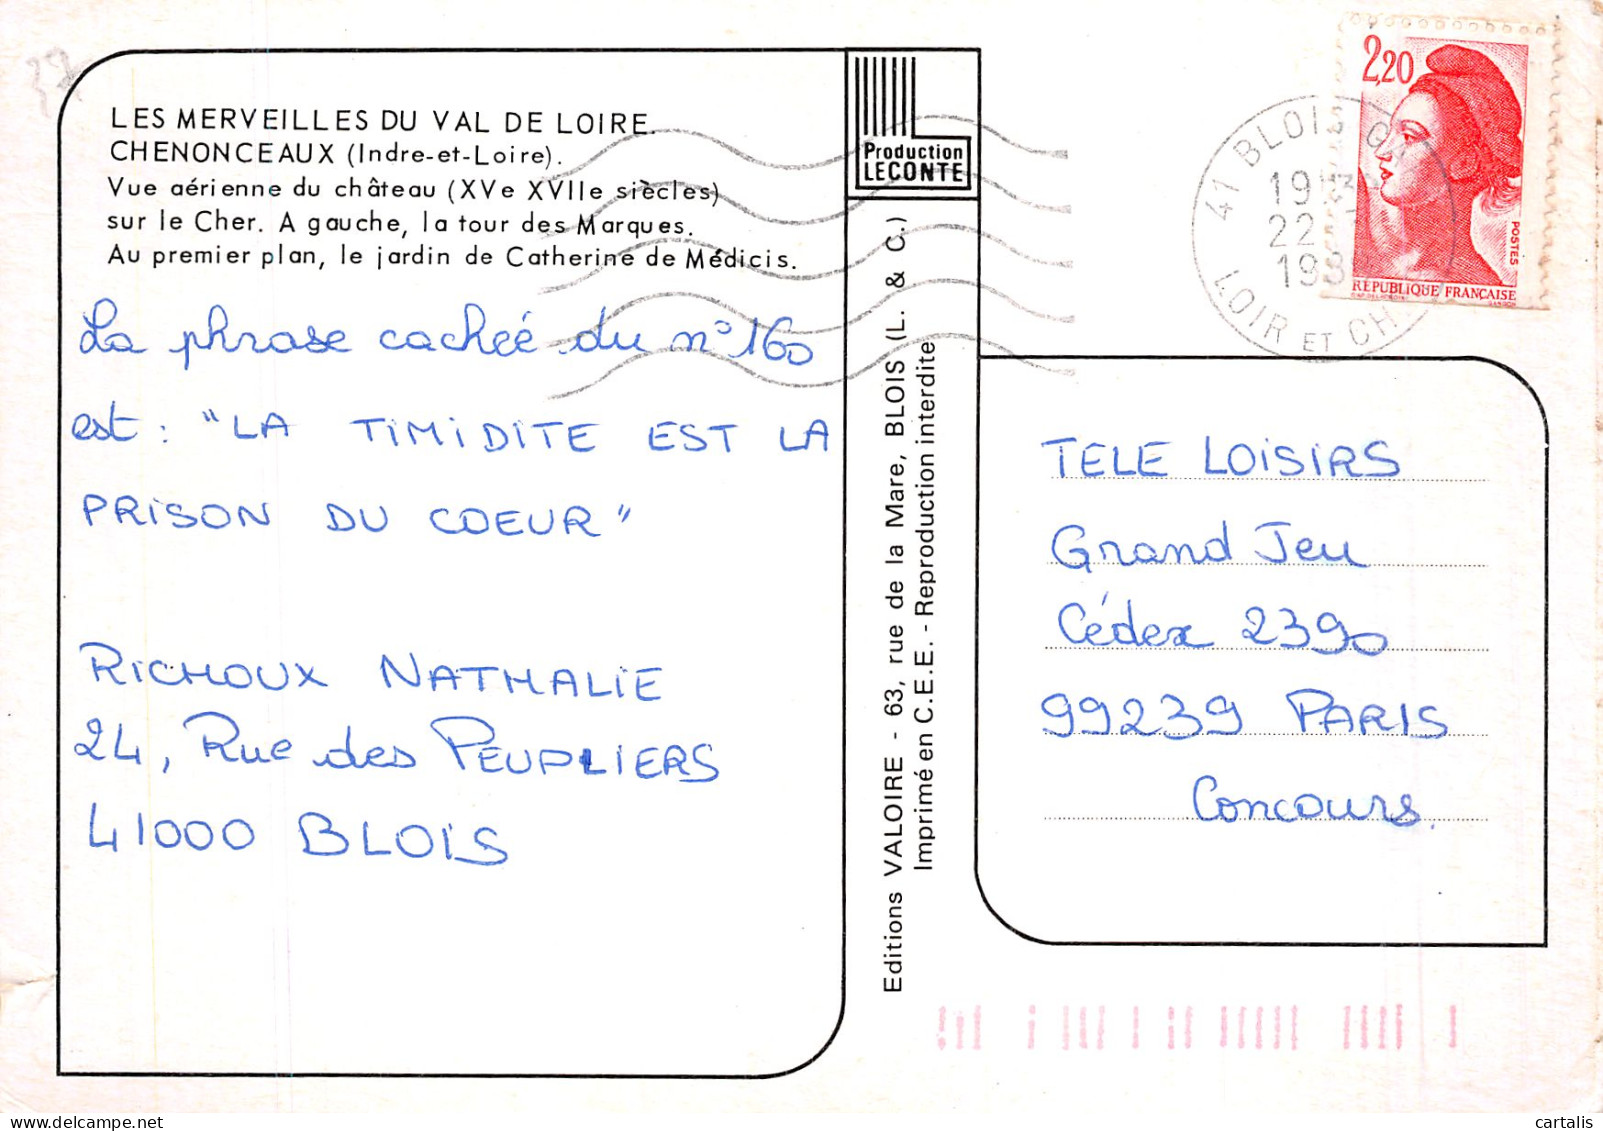 LES MERVEILLES DU VAL DE LOIRE.
CHENONCEAUX (Indre-et-Loire).
Vue aérienne du château (XVe XVIIe siècles)
sur le Cher. A gauche, la tour des Marques.
Au premier plan, le jardin de Catherine de Médicis.
La phrase cachée du n° 160
est : "LA TIMIDITE EST LA
PRISON DU COEUR"
RICHOUX NATHALIE
24, Rue des PEUPLIERS
41000 BLOIS
Production
LECONTE
Editions VALOIRE - 63, rue de la Mare, BLOIS (L. & C.)
Imprimé en C.E.E. - Reproduction interdite
2,20
POSTES
REPUBLIQUE FRANÇAISE
41 BLOIS
22
LOIR ET CH
TELE LOISIRS
Grand Jeu
Cédex 2390
99239 PARIS
Concours.
cartalis